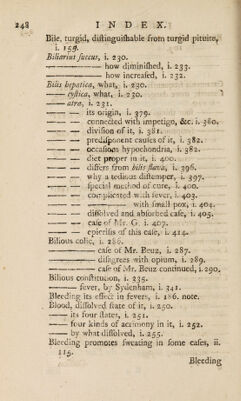 248 INDEX.
Bile, turgid, distinguishable from turgid pituite,
i. 159.
Biliarius succus, i. 230.
——— how diminished, i. 233.
——— how increased, i. 232.
Bilis hepatica, what, i. 230.
—— cystica, what, i. 230.
—— atra, i. 231.
—— — its origin, i. 379.
—— — connected with impetigo, &c. i. 380.
—— — division of it, i. 381.
—— — predisponent causes of it, i. 382.
—— — occasions hypochondria, i. 382.
—— — diet proper in it, i. 400.
—— — differs from bilis flava, i. 396.
—— — why a tedious distemper, i. 397.
—— — special method of cure, i. 400.
—— — complicated with fever, i. 403.
—— — ——— with small-pox, i. 404.
—— — dissolved and absorbed case, i. 405.
—— — case of Mr. G. i. 407.
—— — epicrisis of this case, i. 414.
Bilious colic, i. 286.
——— case of Mr. Beuz, i. 287.
——— disagrees with opium, i. 289.
——— case of Mr. Beuz continued, i. 290.
Bilious constitution, i. 235.
——— fever, by Sydenham, i. 341.
Bleeding its effect in fevers, i. 186. note.
Blood, dissolved state of it, i. 250.
—— its four states, i. 251.
—— four kinds of acrimony in it, i. 252.
—— by what dissolved, i. 255.
Bleeding promotes sweating in some cases, ii.
115.
Bleeding